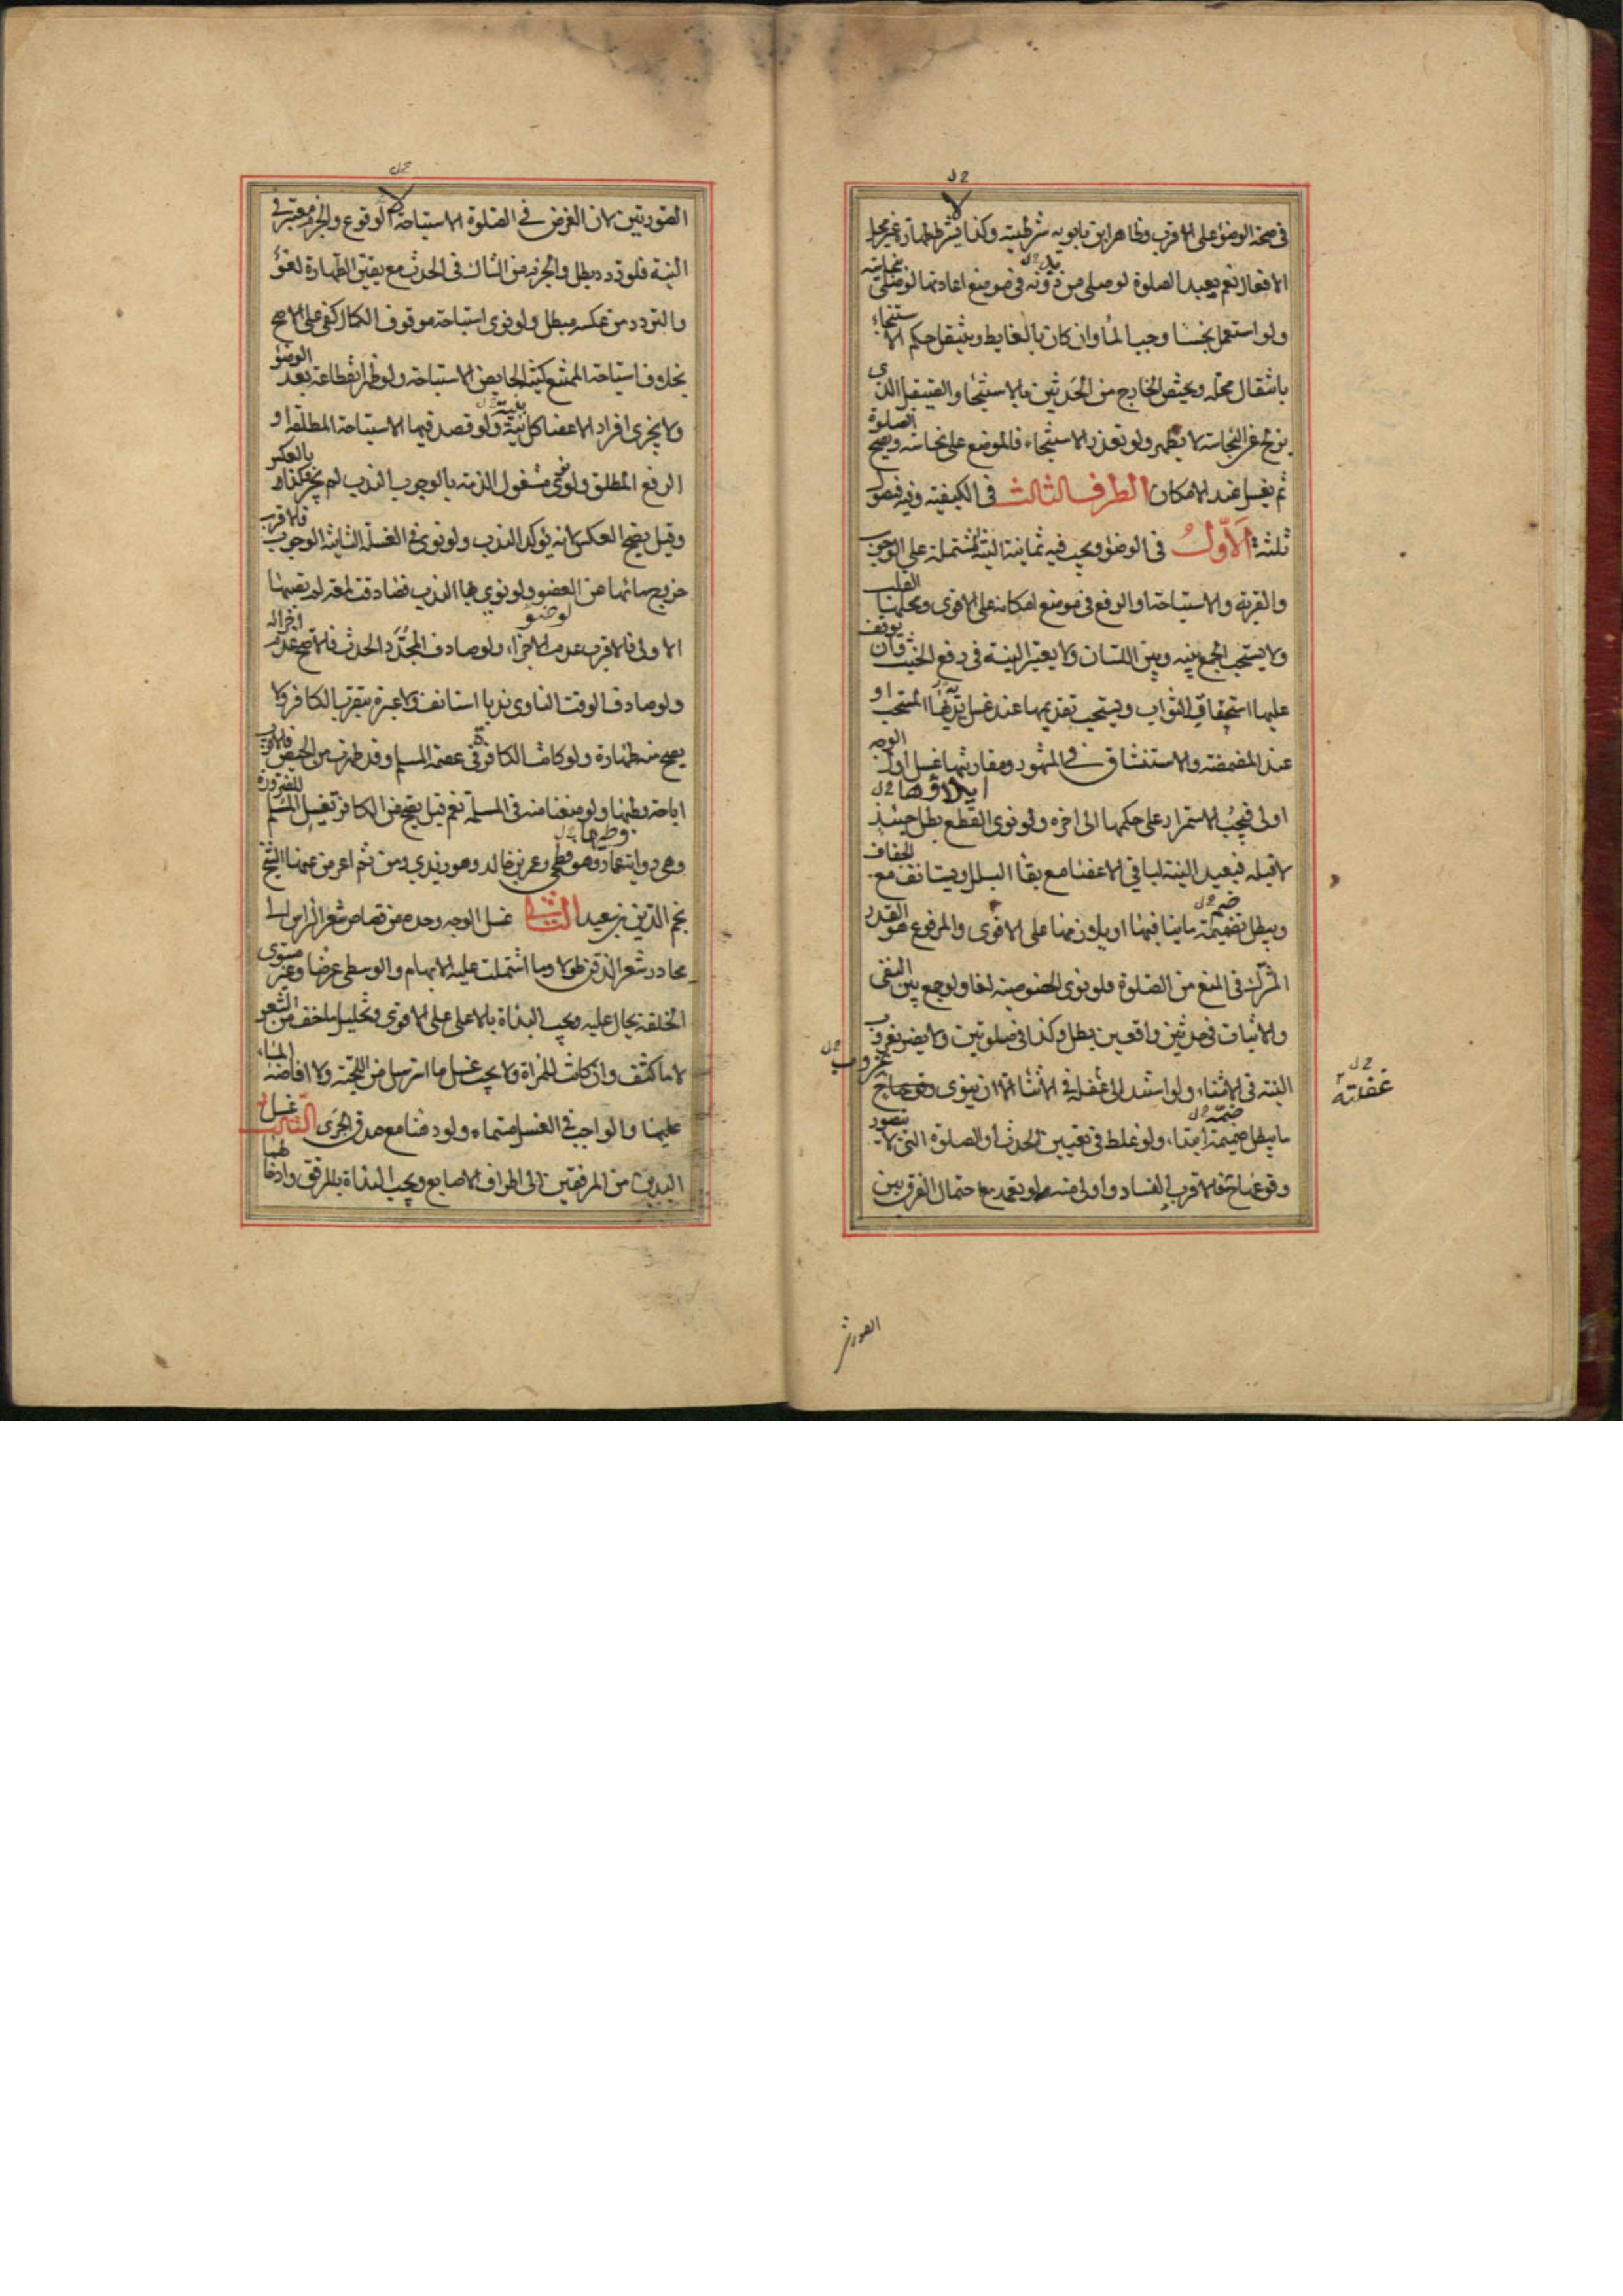 في صحة الوضوء على الاقرب وظاهر ابن بابويه شرطيته وكذا يشترط طهارة غير محل
الافعال نعم يعيد الصلوة لو صلى من دونه في موضع اعادتها لو صلى نجاسته
ولو استعمل نجسا وجب الماء وان كان بالغايط وينتقل حكم الاستنجاء
بانتقال محله ويختص الخارج من الحدثين بالاستنجا والصيقل الذى
يزيل غير النجاسة لا يطهر ولو تعذر الاستنجاء فالموضع على نجاسته ويصح الصلوة
ثم يغسل عند الامكان الطرف الثالث في الكيفيته وفيه فصول
ثلثة الاول في الوضو ويجب فيه ثمانية النية المشتملة على الوجوب
والقربة والاستباحة او الرفع في موضع امكانه على الاقوى ومحلها القلب
ولا يستحب الجمع بينه وبين اللسان ولا يعتبر النية في رفع الخبث وان يوقف
عليها استحقاق الثواب ويستحب تقديمها عند غسل يديه المستحب او
عند المضمضة والاستنشاق في المشهور ومقارنتها غسل اول الوجه
ايلاؤها
اولى فيجب الاستمرار على حكمها الى اخره ولو نوى القطع بطل حينئذ
لا قبله فيعيد النية لباقي الاعضا مع بقا البلل ويستانف مع الجفاف
ويبطل بضميمة ما ينافيها او يلازمها على الاقوى والمرفوع هو القدر
المشترك في المنع من الصلوة فلو نوى الخصوصية لغا ولو جمع بين النفى
والاثبات في حدثين واقعين بطل وكذا في صلوتين ولا يضر عزوب
النية في الاثناء ولو استند الى غفلة في الاثنا الا ان ينوى
ما يبطل ضميمة ابتداء ولو غلط في تعيين الحدث او الصلوة التي لا يتصور
وقوعها فالاقرب الفساد واولى منه لو تعمد مع احتمال الفرق بين
غفلته
الصورتين
الصورتين لان الغرض في الصلوة الاستباحة لا الوقوع والجزم معتبر في
النية فلو تردد بطل والجزم من الشاك في الحدث مع يقين الطهارة لغو
والتردد من عكسه مبطل ولو نوى استباحة موقوف الكمال كفى على الاصح
بخلاف استباحة الممتنع كنية الحايض الاستباحة ولو ظهر انقطاعه بعد الوضو
ولا يجزى افراد الاعضا كل بنية ولو قصد فيها الاستباحة المطلقة او
الرفع المطلق ولو نوى مشغول الذمة بالوجوب الندب لم يجز وكذا بالعكس
وقيل يصح العكس لانه يؤكد الندب ولو نوى في الغسلة الثانية الوجوب فالاقرب
خروج مائها عن العضو ولو نوى بها الندب فصادفت لمعة لم تصبها
الاولى فالاقرب عدم الاجزاء ولو صادف المجدد الحدث فالاصح عدم اجزائه
ولو صادف الوقت الناوى ندبا استانف ولا عبرة بتقرب الكافر ولا
يصح منه طهارة ولو كانت الكافرة في عصمة المسلم وقد طهرت من الحيض فالاقرب
اباحة وطيها ولو منعنا منه في المسلمة للضرورة نعم قيل يصح من الكافر تغسيل المسلم
وهي رواية عمار وهو فطحي وعمرو بن خالد وهو زيدي ومن ثم اعرض عنها الشيخ
نجم الدين بن سعيد الثاني غسل الوجه وحده من قصاص شعر الراس الى
محادر شعر الذقن طولا وما اشتملت عليه الابهام والوسطى عرضا وغير مستوى
الخلقة يحال عليه ويجب البداة بالاعلى على الاقوى وتخليل ما خف من الشعر
لا ما كثف وان كانت للمراة ولا يجب غسل ما استرسل من اللحية ولا افاضة الماء
عليها والواجب في الغسل مسماه ولو دهنا مع صدق الجرى الثالث غسل
اليدين من المرفقين الى اطراف الاصابع ويجب البداة بالمرفق وادخالهما